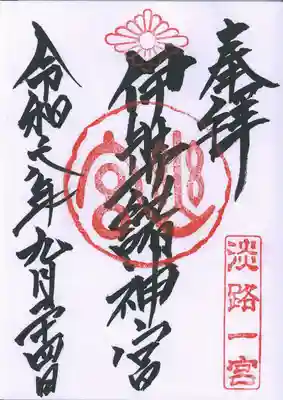 奉拝
淡路一宮
伊弉諾神宮
令和六年九月二十四日